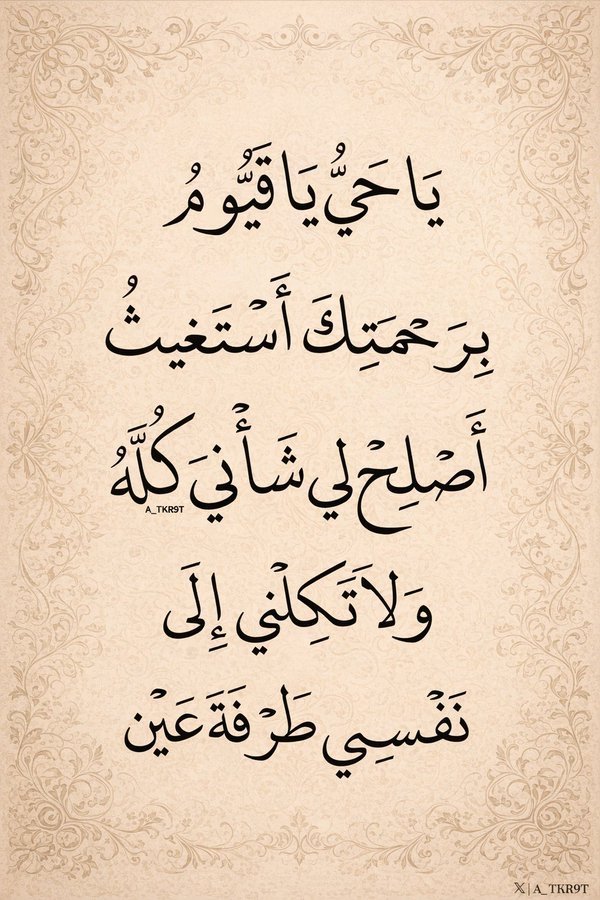 يَا حَيُّ يَا قَيُّومُ
بِرَحْمَتِكَ أَسْتَغيثُ
أَصْلِحْ لي شَأْنيَ كُلَّهُ
A_TKR9T
وَلاَ تَكِلْني إِلَى
نَفْسِي طَرْفَةَ عَيْن
𝕏 | A_TKR9T